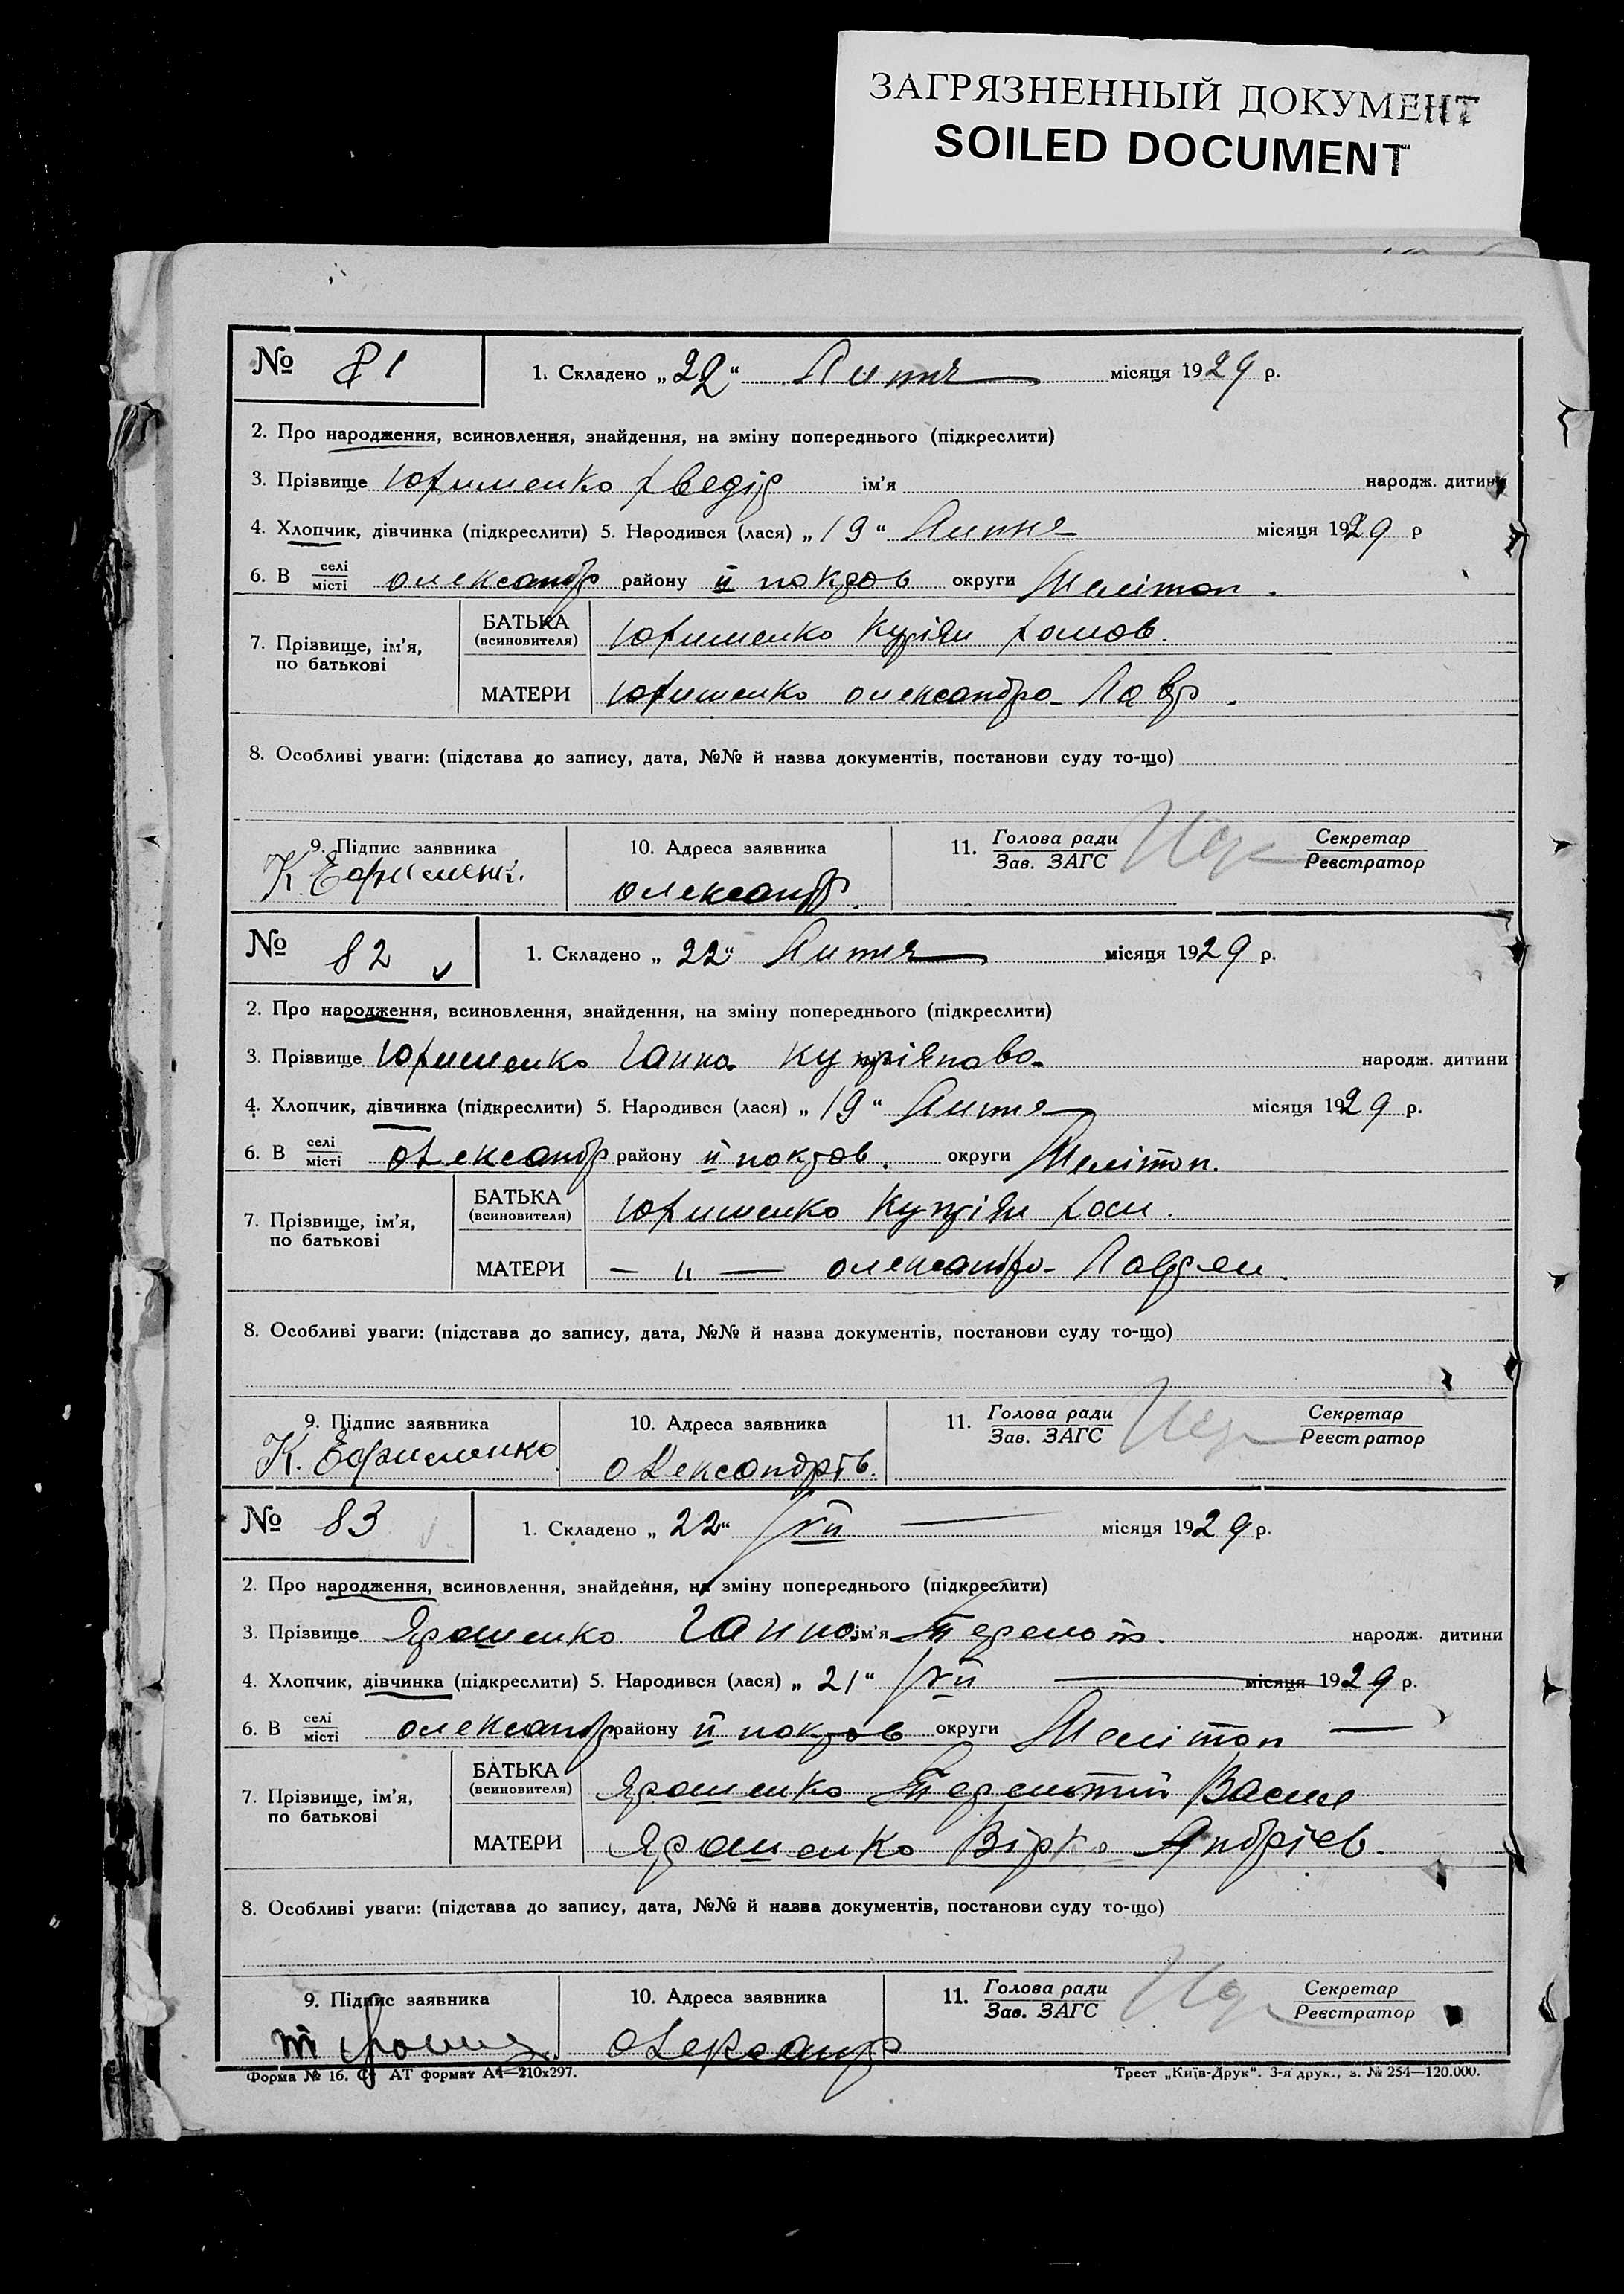 ЗАГРЯЗНЕННЫЙ ДОКУМЕНТ
SOILED DOCUMENT
№ 81
1. Складено „22“ Липня місяця 1929 р.
2. Про народження, всиновлення, знайдення, на зміну попереднього (підкреслити)
3. Прізвище Юхименко ім'я народж. дитини
4. Хлопчик, дівчинка (підкреслити) 5. Народився (лася) „19“ Липня місяця 1929 р
6. В селі/місті олександр району ІІ покров округи Мелітоп.
7. Прізвище, ім'я, по батькові
БАТЬКА (всиновителя) Юхименко Купріян хомов.
МАТЕРИ Юхименко олександра Лавр
8. Особливі уваги: (підстава до запису, дата, №№ й назва документів, постанови суду то-що)
9. Підпис заявника 10. Адреса заявника 11. Голова ради/Зав. ЗАГС Секретар/Реєстратор
К Ефименк. олександр.
№ 82
1. Складено „22“ Липня місяця 1929 р.
2. Про народження, всиновлення, знайдення, на зміну попереднього (підкреслити)
3. Прізвище Юхименко Ганна Купріянова народж. дитини
4. Хлопчик, дівчинка (підкреслити) 5. Народився (лася) „19“ Липня місяця 1929 р.
6. В селі/місті олександр району ІІ покров. округи Мелітоп.
7. Прізвище, ім'я, по батькові
БАТЬКА (всиновителя) Юхименко Купріян хом.
МАТЕРИ — „ — олександра
8. Особливі уваги: (підстава до запису, дата, №№ й назва документів, постанови суду то-що)
9. Підпис заявника 10. Адреса заявника 11. Голова ради/Зав. ЗАГС Секретар/Реєстратор
К. Ефименко олександрів.
№ 83
1. Складено „22“ VII місяця 1929 р.
2. Про народження, всиновлення, знайдення, на зміну попереднього (підкреслити)
3. Прізвище Ярошенко Ганна ім'я народж. дитини
4. Хлопчик, дівчинка (підкреслити) 5. Народився (лася) „21“ VII місяця 1929 р.
6. В селі/місті олександр району ІІ покров округи Мелітоп
7. Прізвище, ім'я, по батькові
БАТЬКА (всиновителя) Ярошенко Терентій Васил
МАТЕРИ Ярошенко Вірка Андріев.
8. Особливі уваги: (підстава до запису, дата, №№ й назва документів, постанови суду то-що)
9. Підпис заявника 10. Адреса заявника 11. Голова ради/Зав. ЗАГС Секретар/Реєстратор
олександр
Форма № 16. Ст АТ формат А4—210х297. Трест „Київ-Друк“. 3-я друк., з. № 254—120.000.